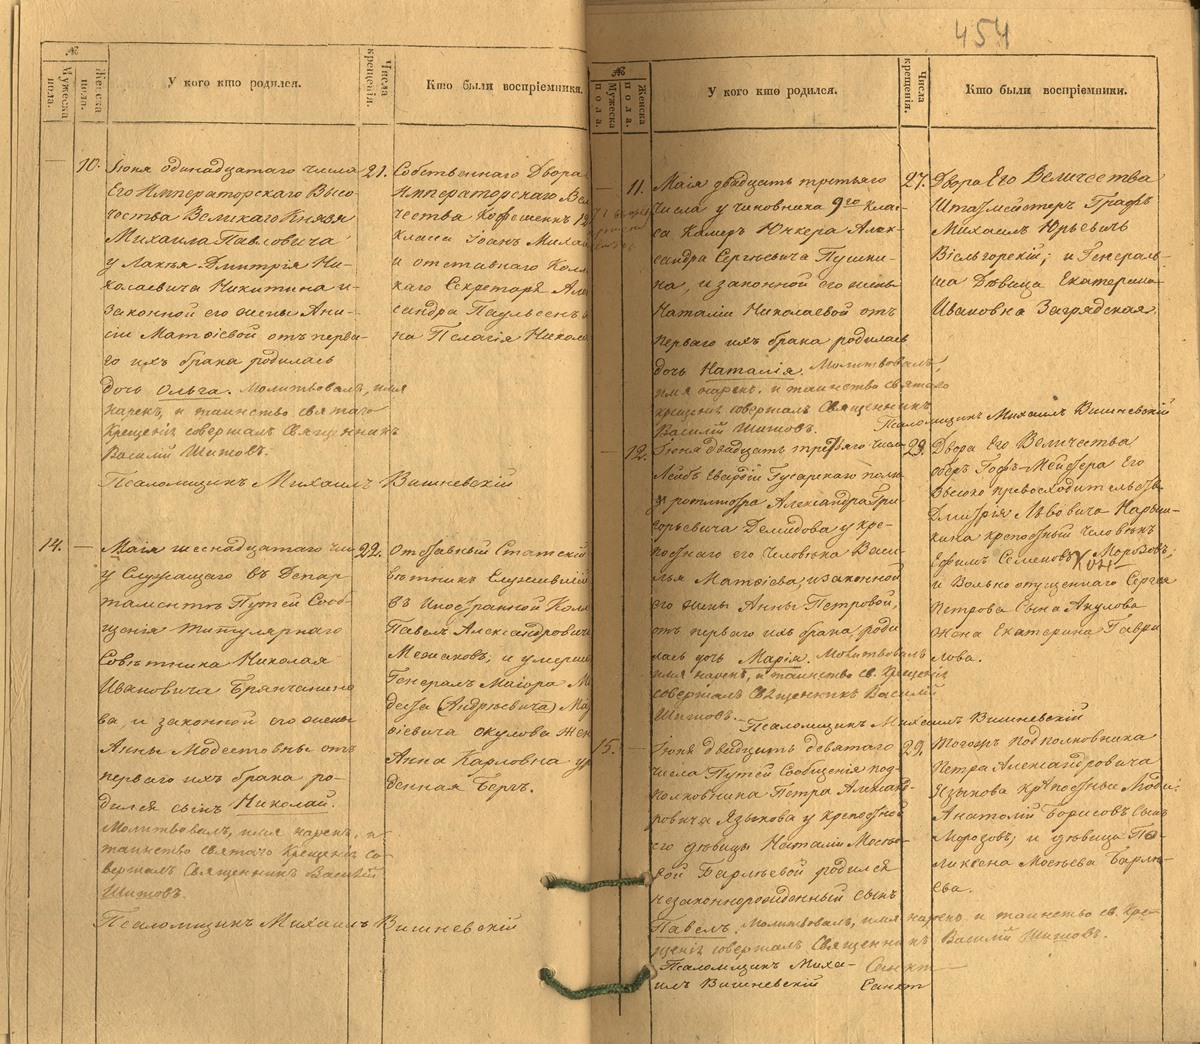 454
№
Мужеска пола.
Женска пола.
У кого кто родился.
Числа крещенія.
Кто были воспріемники.
10.
Іюня одинадцатаго числа
Его Императорскаго Высо-
чества Великаго Князя
Михаила Павловича
у Лакея Дмитрія Ни-
колаевича Никитина и
законной его жены Ани-
сіи Матвіевой отъ перва-
го ихъ брака родилась
дочь Ольга. Молитвовалъ, имя
нарекъ, и таинство святаго
Крещенія совершалъ Священникъ
Василій Шишовъ.
21.
Собственнаго Двора
Императорскаго Вел
чества Кофешенкъ 12
класса Іоанъ Михаи
и отставнаго Колл
каго Секретаря Але
сандра Паульсенъ
на Пелагія Никола
Псаломщикъ Михаилъ Вишневскій
14.
Маія шеснадцатаго чи
у Служащаго въ Депар
таментѣ Путей Сооб-
щенія Титулярнаго
Совѣтника Николая
Ивановича Брянчанино
ва и законной его жены
Анны Модестовны отъ
перваго ихъ брака ро-
дился сынъ Николай.
Молитвовалъ, имя нарекъ, и
таинство святаго Крещенія со-
вершалъ Священникъ Василій
Шишовъ
22.
Отставный Статскій
вѣтникъ Служившій
въ Иностранной Кол
Павелъ Александровичъ
Межаковъ, и умерш
Генералъ Маіора М
деста (Андрѣевича) Ма
ѳіевича Окулова Жен
Анна Карловна ур
денная Бергъ.
Псаломщикъ Михаилъ Вишневскій
№
Мужеска пола.
Женска пола.
У кого кто родился.
Числа крещенія.
Кто были воспріемники.
11.
Маія двадцать третьяго
числа у чиновника 9го клас-
са Камеръ Юнкера Алек-
сандра Сергѣевича Пушки-
на, и законной его жены
Наталіи Николаевой отъ
перваго ихъ брака родилась
дочь Наталія. Молитвовалъ,
имя нарекъ. и таинство святаго
крещенія совершалъ Священникъ
Василій Шишовъ.
27.
Двора Его Величества
Шталмейстеръ Графъ
Михаилъ Юрьевичъ
Віельгорскій; и Генераль-
ша Дѣвица Екатерина
Ивановна Загряжская
Псаломщикъ Михаилъ Вишневскій
12.
Іюня двадцать третяго числа
Лейбъ Гвардіи Гусарскаго полка
у ротмистра Александра Гри-
горьевича Демидова у кре-
постнаго его человѣка Васи-
лья Матвѣева, и законной
его жены Анны Петровой,
отъ перваго ихъ брака роди
лась дочь Марія. Молитвовалъ
имя нарекъ, и таинство св. Крещенія
совершалъ Священникъ Василій
Шишовъ.
29.
Двора Его Величества
оберъ Гофъ-Мейстера Его
Высоко превосходительства
Дмитрія Львовича Нарыш-
кина крепостный человѣкъ
Ефимъ Семеновъ Морозовъ;
и Вольно отпущеннаго Сергея
Петрова Сына Акулова
жена Екатерина Гаври
лова.
Псаломщикъ Михаилъ Вишневскій
15.
Іюня двадцать девятаго
числа Путей Сообщенія под-
полковника Петра Александ-
ровича Языкова у крепостной
его дѣвицы Наталіи Мосѣе-
вой Барлѣевой родился
незаконнорожденный сынъ
Павелъ. Молитвовалъ, имя нарекъ и таинство св. Кре-
щенія совершалъ Священникъ Василій Шишовъ.
29.
Тогожъ Подполковника
Петра Александровича
Языкова крѣпостные Люди:
Анатолій Борисовъ Сынъ
Морозовъ; и дѣвица По-
ликсена Мосѣева Барлѣ-
ева.
Псаломщикъ Миха-
илъ Вишневскій
Санкт
Санкт